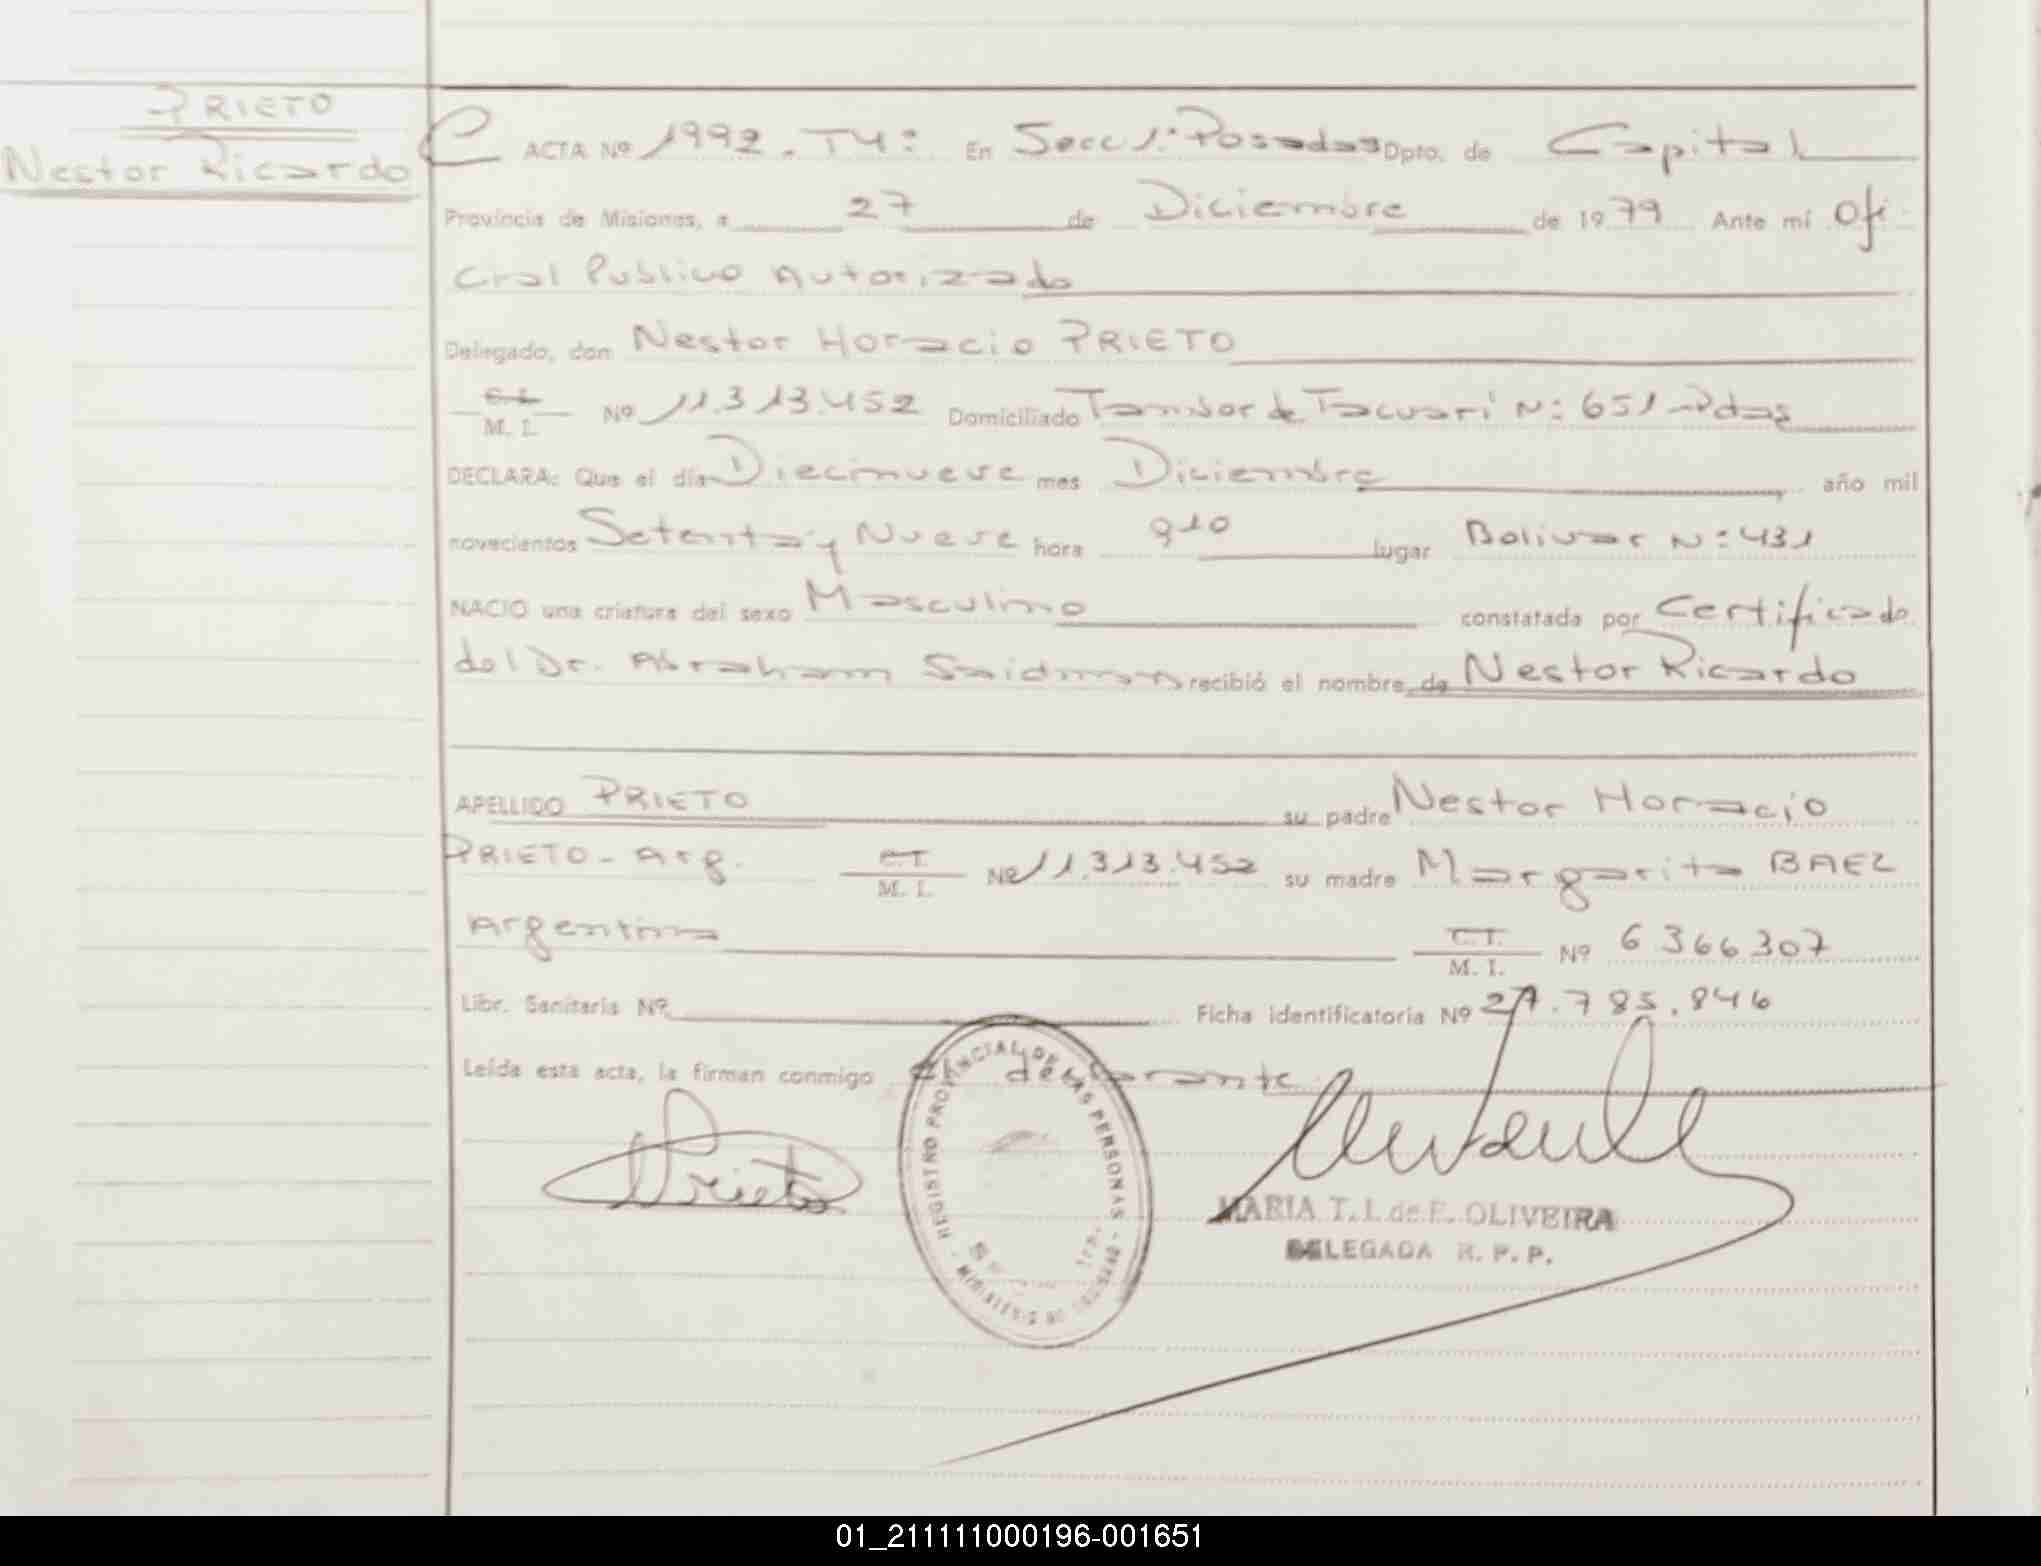 PRIETO
Nestor Ricardo
C ACTA Nº 1992. T4: En Secc 1: Posadas Dpto. de Capital
Provincia de Misiones, a 27 de Diciembre de 1979 Ante mí Ofi
cial Publico Autorizado
Delegado, don Nestor Horacio PRIETO
M. I. Nº 11.313.452 Domiciliado Tambor de Tacuari N: 651 - Pdas
DECLARA: Que el día Diecinueve mes Diciembre año mil
novecientos Setenta y Nueve hora 910 lugar Bolivar N: 431
NACIO una criatura del sexo Masculino constatada por Certificado
del Dr. Abraham Saidman recibió el nombre de Nestor Ricardo
APELLIDO PRIETO su padre Nestor Horacio
PRIETO - Arg. C.I. M. I. Nº 11.313.452 su madre Margarita BAEZ
Argentina C.I. M. I. Nº 6366307
Libr. Sanitaria Nº Ficha identificatoria Nº 27.785.846
Leída esta acta, la firman conmigo el declarante
Prieto
REGISTRO PROVINCIAL DE LAS PERSONAS
MARIA T. I. de F. OLIVEIRA
DELEGADA R. P. P.
01_211111000196-001651